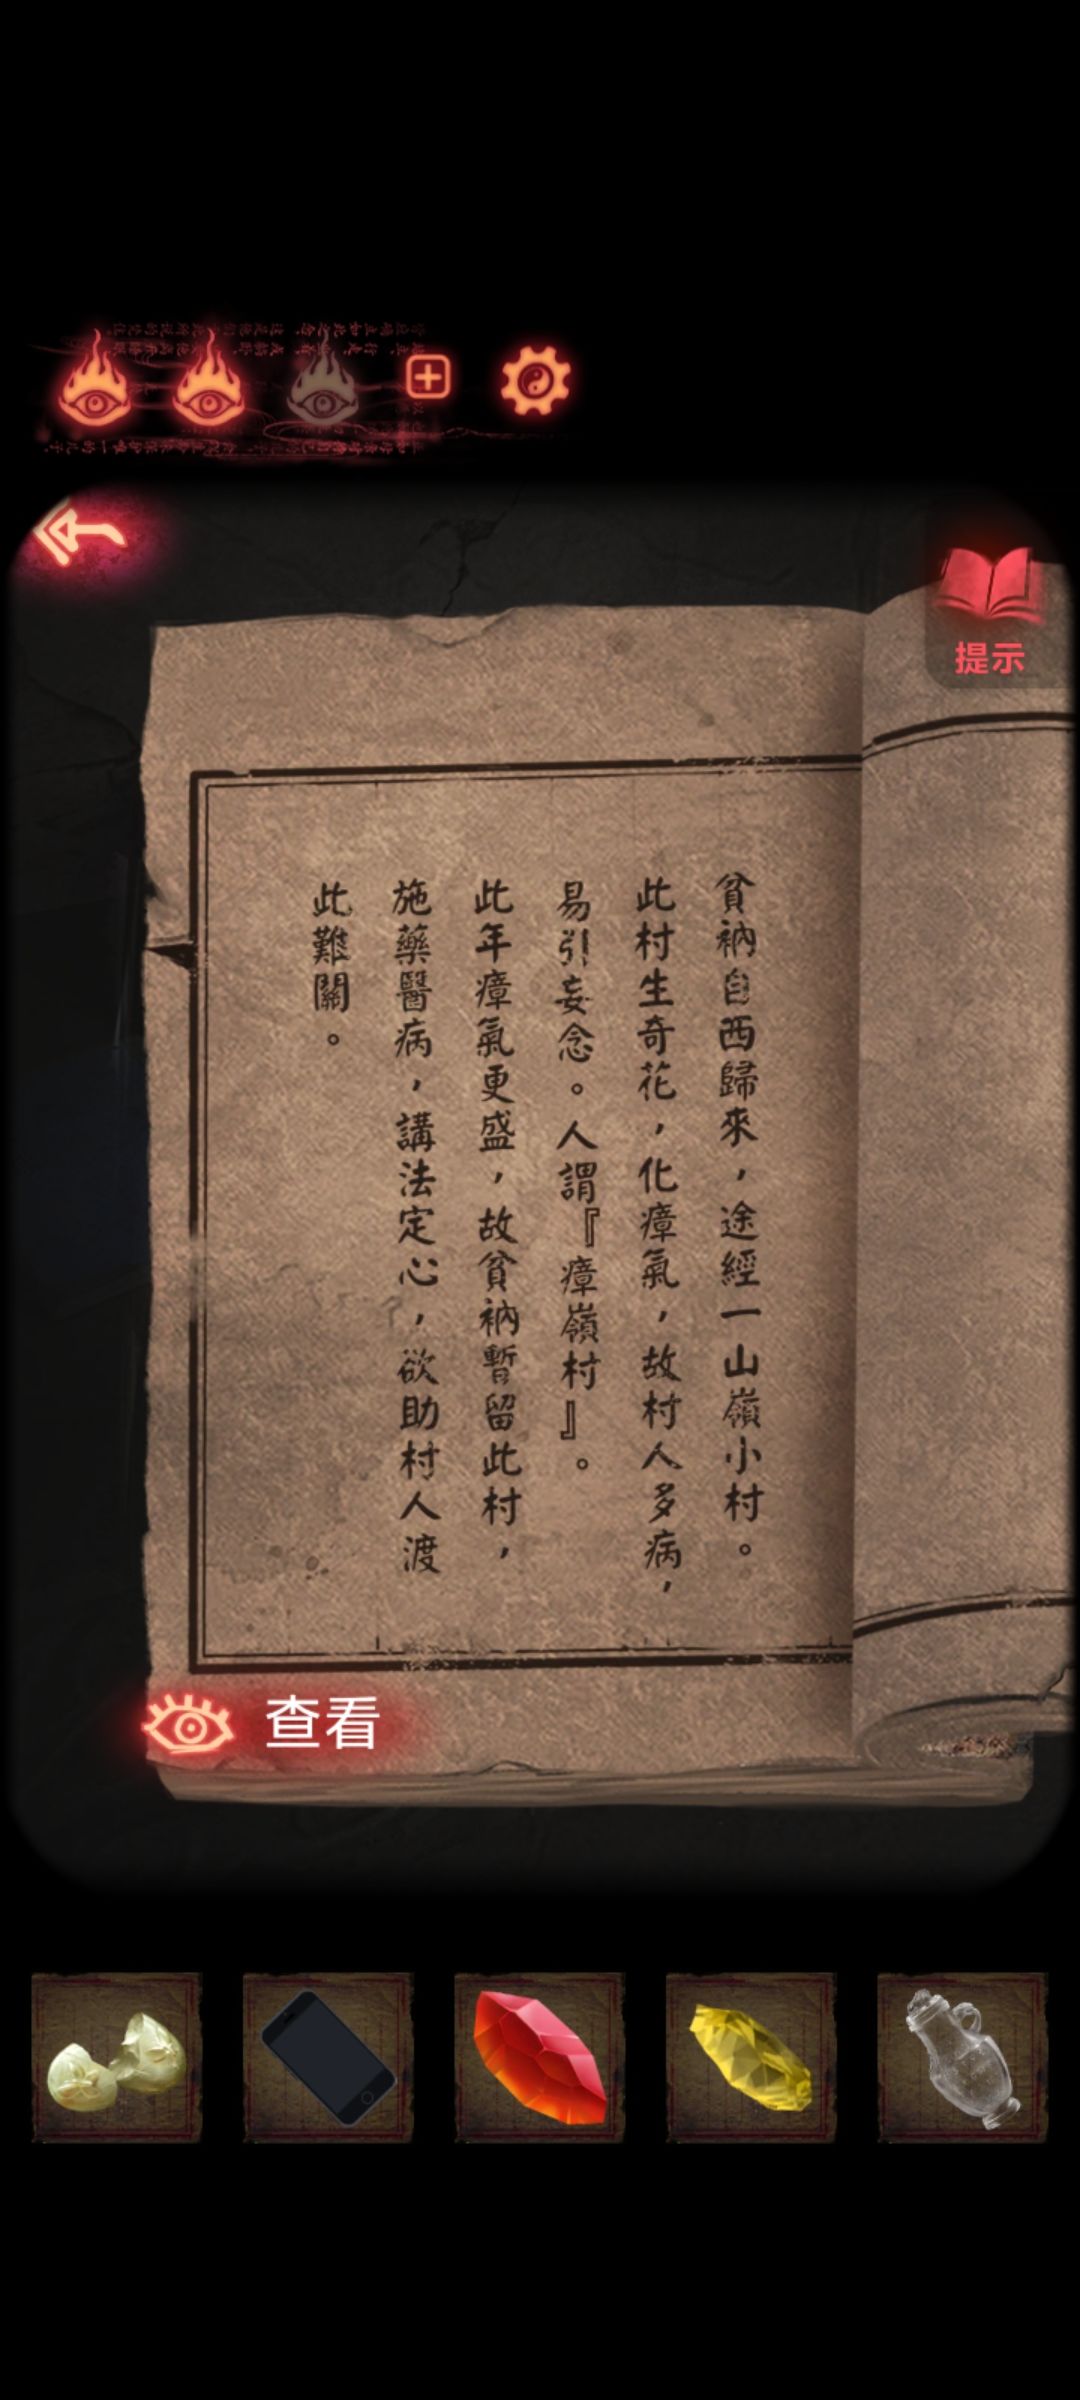 提示
貧衲自西歸來，途經一山嶺小村。
此村生奇花，化瘴氣，故村人多病，
易引妄念。人謂『瘴嶺村』。
此年瘴氣更盛，故貧衲暫留此村，
施藥醫病，講法定心，欲助村人渡
此難關。
查看